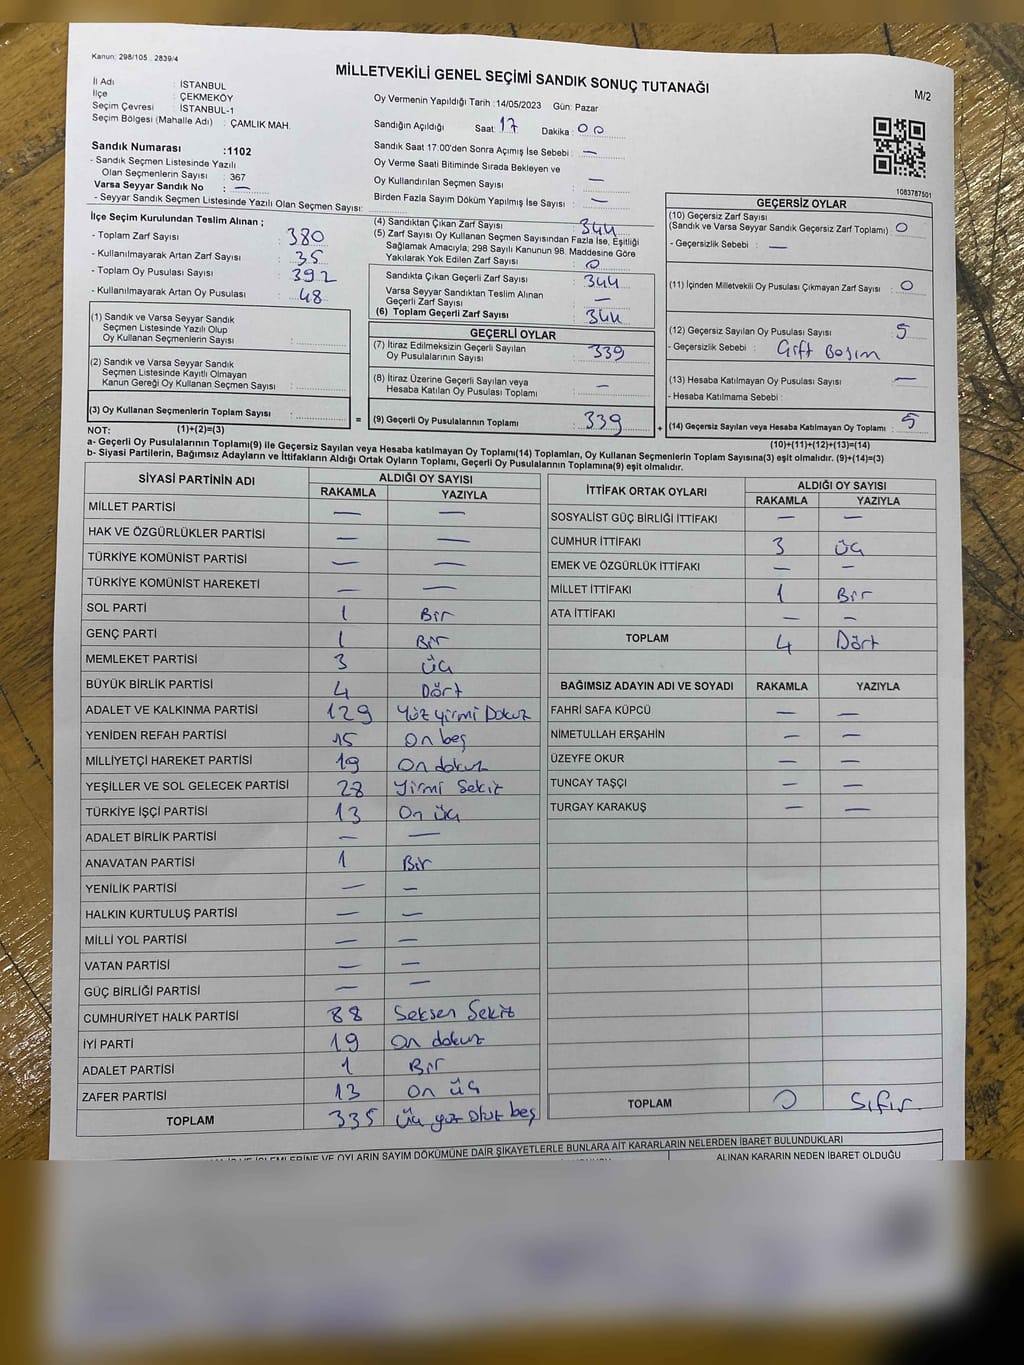 Kanun: 298/105 . 2839/4
MİLLETVEKİLİ GENEL SEÇİMİ SANDIK SONUÇ TUTANAĞI
M/2
İl Adı : İSTANBUL
İlçe : ÇEKMEKÖY
Seçim Çevresi : İSTANBUL-1
Seçim Bölgesi (Mahalle Adı) : ÇAMLIK MAH.
Oy Vermenin Yapıldığı Tarih :14/05/2023 Gün: Pazar
Sandığın Açıldığı Saat: 17 Dakika : 00
Sandık Saat 17:00'den Sonra Açımış İse Sebebi : —
Oy Verme Saati Bitiminde Sırada Bekleyen ve
Oy Kullandırılan Seçmen Sayısı : —
Birden Fazla Sayım Döküm Yapılmış İse Sayısı : —
1083787501
Sandık Numarası :1102
- Sandık Seçmen Listesinde Yazılı
Olan Seçmenlerin Sayısı : 367
Varsa Seyyar Sandık No : —
- Seyyar Sandık Seçmen Listesinde Yazılı Olan Seçmen Sayısı:
İlçe Seçim Kurulundan Teslim Alınan ;
- Toplam Zarf Sayısı : 380
- Kullanılmayarak Artan Zarf Sayısı : 35
- Toplam Oy Pusulası Sayısı : 392
- Kullanılmayarak Artan Oy Pusulası : 48
(1) Sandık ve Varsa Seyyar Sandık
Seçmen Listesinde Yazılı Olup
Oy Kullanan Seçmenlerin Sayısı :
(2) Sandık ve Varsa Seyyar Sandık
Seçmen Listesinde Kayıtlı Olmayan
Kanun Gereği Oy Kullanan Seçmen Sayısı :
(3) Oy Kullanan Seçmenlerin Toplam Sayısı :
(1)+(2)=(3)
(4) Sandıktan Çıkan Zarf Sayısı : 344
(5) Zarf Sayısı Oy Kullanan Seçmen Sayısından Fazla İse, Eşitliği
Sağlamak Amacıyla, 298 Sayılı Kanunun 98. Maddesine Göre
Yakılarak Yok Edilen Zarf Sayısı : 0
Sandıkta Çıkan Geçerli Zarf Sayısı : 344
Varsa Seyyar Sandıktan Teslim Alınan
Geçerli Zarf Sayısı : —
(6) Toplam Geçerli Zarf Sayısı : 344
GEÇERLİ OYLAR
(7) İtiraz Edilmeksizin Geçerli Sayılan
Oy Pusulalarının Sayısı : 339
(8) İtiraz Üzerine Geçerli Sayılan veya
Hesaba Katılan Oy Pusulaları Toplamı : —
= (9) Geçerli Oy Pusulalarının Toplamı : 339
GEÇERSİZ OYLAR
(10) Geçersiz Zarf Sayısı
(Sandık ve Varsa Seyyar Sandık Geçersiz Zarf Toplamı) : 0
- Geçersizlik Sebebi : —
(11) İçinden Milletvekili Oy Pusulası Çıkmayan Zarf Sayısı : 0
(12) Geçersiz Sayılan Oy Pusulası Sayısı : 5
- Geçersizlik Sebebi : Çift Basım
(13) Hesaba Katılmayan Oy Pusulası Sayısı : —
- Hesaba Katılmama Sebebi :
+ (14) Geçersiz Sayılan veya Hesaba Katılmayan Oy Toplamı : 5
(10)+(11)+(12)+(13)=(14)
NOT:
a- Geçerli Oy Pusulalarının Toplamı(9) ile Geçersiz Sayılan veya Hesaba katılmayan Oy Toplamı(14) Toplamları, Oy Kullanan Seçmenlerin Toplam Sayısına(3) eşit olmalıdır. (9)+(14)=(3)
b- Siyasi Partilerin, Bağımsız Adayların ve İttifakların Aldığı Ortak Oyların Toplamı, Geçerli Oy Pusulalarının Toplamına(9) eşit olmalıdır.
SİYASİ PARTİNİN ADI ALDIĞI OY SAYISI
RAKAMLA YAZIYLA
MİLLET PARTİSİ — —
HAK VE ÖZGÜRLÜKLER PARTİSİ — —
TÜRKİYE KOMÜNİST PARTİSİ — —
TÜRKİYE KOMÜNİST HAREKETİ — —
SOL PARTİ 1 Bir
GENÇ PARTİ 1 Bir
MEMLEKET PARTİSİ 3 üç
BÜYÜK BİRLİK PARTİSİ 4 Dört
ADALET VE KALKINMA PARTİSİ 129 Yüz yirmi Dokuz
YENİDEN REFAH PARTİSİ 15 On beş
MİLLİYETÇİ HAREKET PARTİSİ 19 On dokuz
YEŞİLLER VE SOL GELECEK PARTİSİ 28 Yirmi Sekiz
TÜRKİYE İŞÇİ PARTİSİ 13 On üç
ADALET BİRLİK PARTİSİ — —
ANAVATAN PARTİSİ 1 Bir
YENİLİK PARTİSİ — —
HALKIN KURTULUŞ PARTİSİ — —
MİLLİ YOL PARTİSİ — —
VATAN PARTİSİ — —
GÜÇ BİRLİĞİ PARTİSİ — —
CUMHURİYET HALK PARTİSİ 88 Seksen Sekiz
İYİ PARTİ 19 On dokuz
ADALET PARTİSİ 1 Bir
ZAFER PARTİSİ 13 On üç
TOPLAM 335 üç yüz otuz beş
İTTİFAK ORTAK OYLARI ALDIĞI OY SAYISI
RAKAMLA YAZIYLA
SOSYALİST GÜÇ BİRLİĞİ İTTİFAKI — —
CUMHUR İTTİFAKI 3 üç
EMEK VE ÖZGÜRLÜK İTTİFAKI — —
MİLLET İTTİFAKI 1 Bir
ATA İTTİFAKI — —
TOPLAM 4 Dört
BAĞIMSIZ ADAYIN ADI VE SOYADI RAKAMLA YAZIYLA
FAHRİ SAFA KÜPCÜ — —
NİMETULLAH ERŞAHİN — —
ÜZEYFE OKUR — —
TUNCAY TAŞÇI — —
TURGAY KARAKUŞ — —
TOPLAM 0 Sıfır
İŞLEMLERİNE VE OYLARIN SAYIM DÖKÜMÜNE DAİR ŞİKAYETLERLE BUNLARA AİT KARARLARIN NELERDEN İBARET BULUNDUKLARI
ALINAN KARARIN NEDEN İBARET OLDUĞU